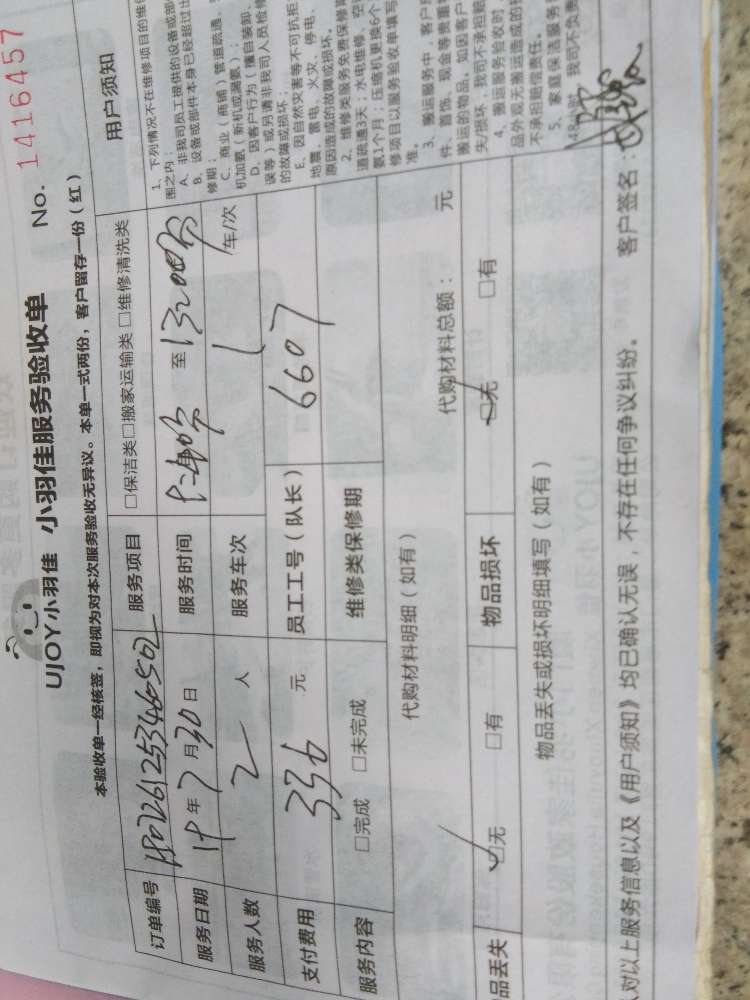 UJOY小羽佳 小羽佳服务验收单 No. 1416457
本验收单一经核签，即视为对本次服务验收无异议。本单一式两份，客户留存一份（红）
订单编号 服务项目 □保洁类□搬家运输类 □维修清洗类
服务日期 19 年 7 月 30 日 服务时间 至
服务人数 2 人 服务车次 1 车/次
支付费用 336 元 员工工号（队长） 6607
服务内容 □完成 □未完成 维修类保修期
代购材料明细（如有） 代购材料总额： 元
品丢失 □无 □有 物品损坏 □无 □有
物品丢失或损坏明细填写（如有）
用户须知
1、下列情况不在维修项目的维
围之内：
A、非我司员工提供的设备或部
B、设备或部件本身已经超过
修期；
C、商业（商铺）管道疏通、
机加氨（新机或漏氨）；
D、因客户行为（擅自装卸、
误等）或另请非我司人员检修
的故障或损坏；
E、因自然灾害等不可抗拒
地震、雷电、火灾、停电、
原因造成的故障或损坏。
2、维修类服务免费保修期
道疏通3天；水电维修、空
氨1个月；压缩机更换6个
修项目以服务验收单填写
准。
3、搬运服务中，客户
件、首饰、现金等贵重
搬运的物品。如因客户
失/损坏，我司不承担赔
4、搬运服务验收时，
品外观无搬运造成的损
不承担赔偿责任。
5、家庭保洁服务
48小时，我司不负责
人对以上服务信息以及《用户须知》均已确认无误，不存在任何争议纠纷。 客户签名：